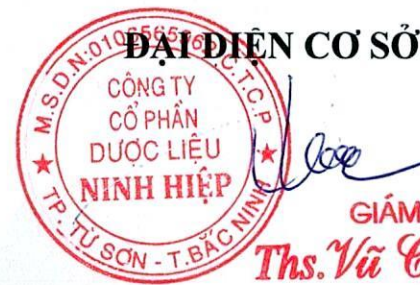 ĐẠI DIỆN CƠ SỞ
M.S.D.N: C.T.C.P
CÔNG TY
CỔ PHẦN
DƯỢC LIỆU
NINH HIỆP
TP. TỪ SƠN - T.BẮC NINH
GIÁM
Ths. Vũ